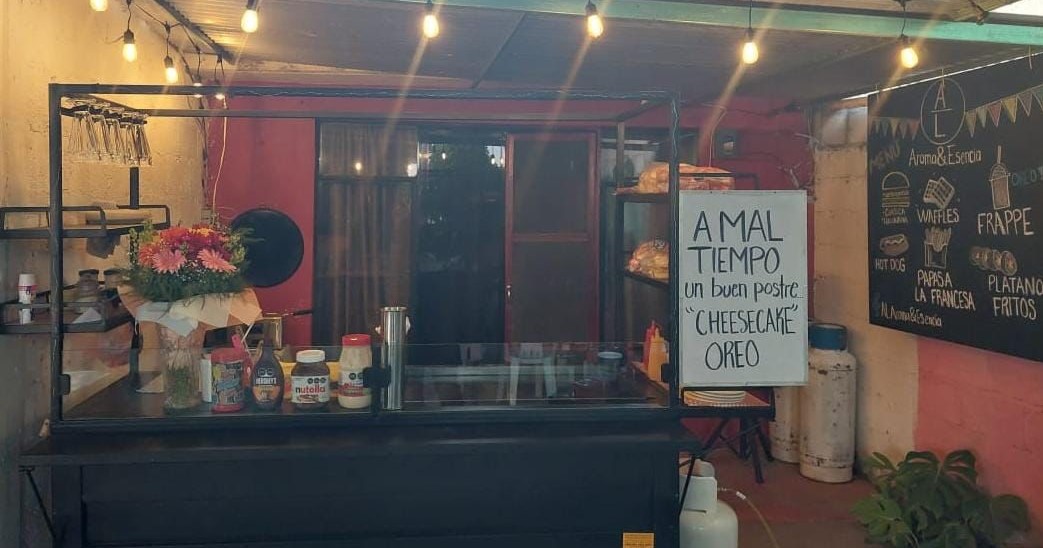 A MAL
TIEMPO
un buen postre...
"CHEESECAKE"
OREO
MENÚ
A
L
Aroma&Esencia
WAFFLES
FRAPPE
HOT DOG
PAPAS A
LA FRANCESA
PLATANOS
FRITOS
AL Aroma&Esencia
HERSHEY'S
nutella